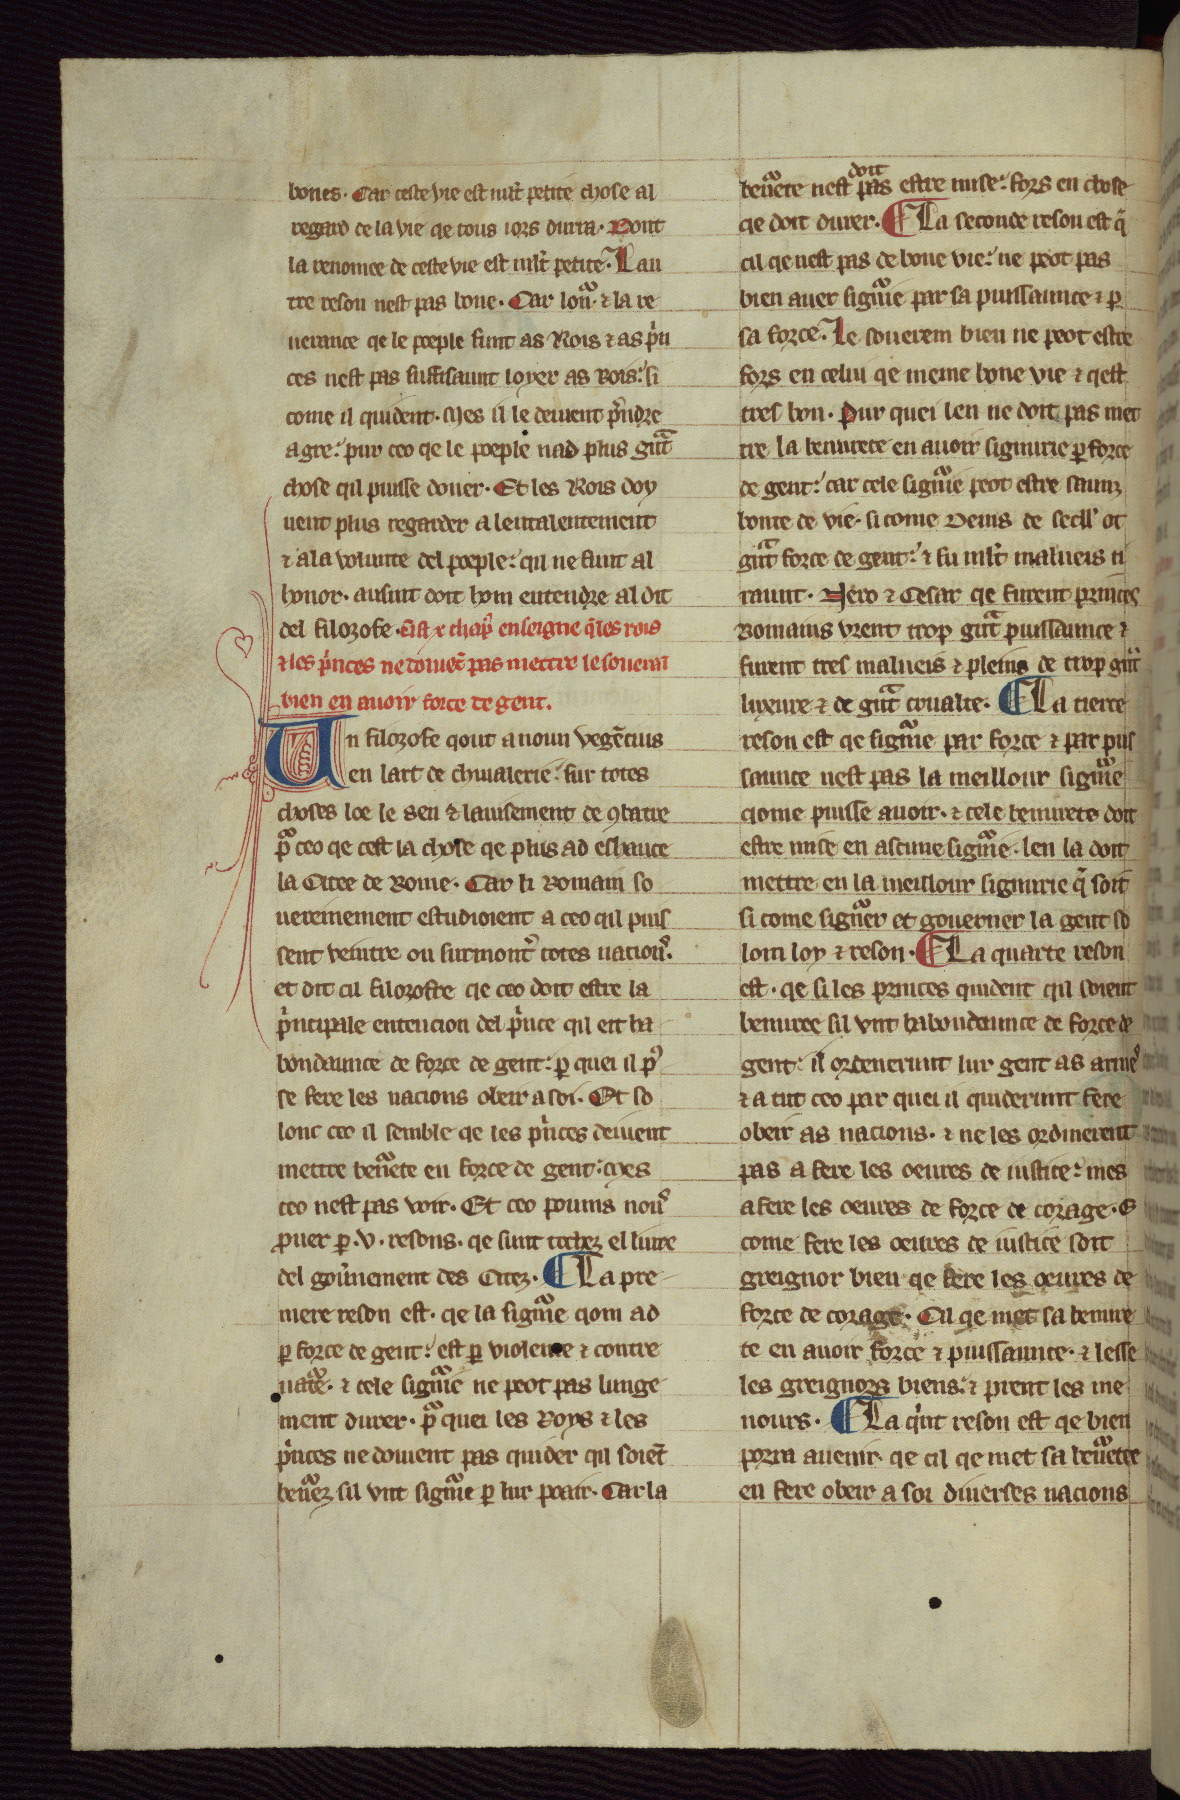 bones. Car ceste vie est mlt petite chose al
regard de la vie qe tous iors durra. Dont
la renomee de ceste vie est mlt petite. Lau
tre reson nest pas bone. Car lonᵃ. ⁊ la re
uerance qe le poeple funt as Rois ⁊ as pⁱn
ces nest pas suffisaunt loyer as Rois: si
come il quident. Mes il le deiuent pⁱndre
a gre: pur ceo qe le poeple nad plus gᵃt
chose qil puisse doner. Et les Rois doy
uent plus regarder a lentalentement
⁊ a la volunte del poeple: qil ne funt al
honor. ausint doit hom entendre al dit
del filozofe. Cist x chapⁱ enseigne q̄ les rois
⁊ les pⁱnces ne doiuēt pas mettre le souerai
bien en auoir force de gent.
Un filozofe qout a noun vegēcius
en lart de chiualerie: sur totes
choses loe le sen ⁊ lauisement de ꝯbatre
pᵃ ceo qe cest la chose qe plus ad eshauce
la Citee de Rome. Car li Romain so
uereinement estudioient a ceo qil puis
sent veintre ou surmontᵉ totes nacionˢ.
et dit cil filozofre qe ceo doit estre la
pⁱncipale entencion del pⁱnce qil eit ha
bondaunce de force de gent: ꝑ quei il pᵒ
se fere les nacions obeir a soi. Et so
lonc ceo il semble qe les pⁱnces deiuent
mettre beuᵃete en force de gent: Mes
ceo nest pas voir. Et ceo poums nouˢ
prouer ꝑ .v. resons. qe sunt tochez el liure
del goūnement des Citez. ¶ La pre
mere reson est. qe la signᵃie qom ad
ꝑ force de gent: est ꝑ violence ⁊ contre
natᵃe. ⁊ cele signᵃie ne peot pas lunge
ment durer. pᵃ quei les Roys ⁊ les
pⁱnces ne doiuent pas quider qil soiēt
beuᵃez sil vnt signᵃie ꝑ lur poair. Car la
beuᵃete nest doit pas estre mise: fors en chose
qe doit durer. ¶ La seconde reson est q̄
cil qe nest pas de bone vie: ne peot pas
bien auer signᵃie par sa puissaunce ⁊ ꝑ
sa force. Le souerein bien ne peot estre
fors en celui qe meine bone vie ⁊ qest
tres bon. Pur quei len ne doit pas met
tre la benurete en auoir signurie ꝑ force
de gent: car cele signᵃie peot estre saunz
bonte de vie. si come Denis de secill' ot
gᵃt force de gent: ⁊ fu mlt malueis ti
raunt. Nero ⁊ Cesar qe furent princes
Romains vrent trop gᵃt puissaunce ⁊
furent tres malueis ⁊ pleins de trop gᵃt
luxure ⁊ de gᵃt couaitē. ¶ La tierce
reson est qe signᵃie par force ⁊ par puis
saunce nest pas la meillour signᵃie
qome puisse auoir. ⁊ cele benurete doit
estre mise en ascune signᵃie. len la doit
mettre en la meillour signurie q̄ soit
si come signᵃer et gouerner la gent so
lom loy ⁊ reson. ¶ La quarte reson
est. qe si les princes quident qil soient
benuree sil vnt habondaunce de force de
gent: il ordenerunt lur gent as armeˢ
⁊ a tut ceo par quei il quiderunt fere
obeir as nacions. ⁊ ne les ordinerent
pas a fere les oeures de iustice: mes
a fere les oeures de force de corage. E
come fere les oeures de iustice soit
greignor bien qe fere les oeures de
force de corage. Cil qe met sa benure
te en auoir force ⁊ puissaunce. ⁊ lesse
les greignors biens: ⁊ prent les me
nours. ¶ La qⁱnt reson est qe bien
porra auenir. qe cil qe met sa beuᵃetee
en fere obeir a soi diuerses nacions